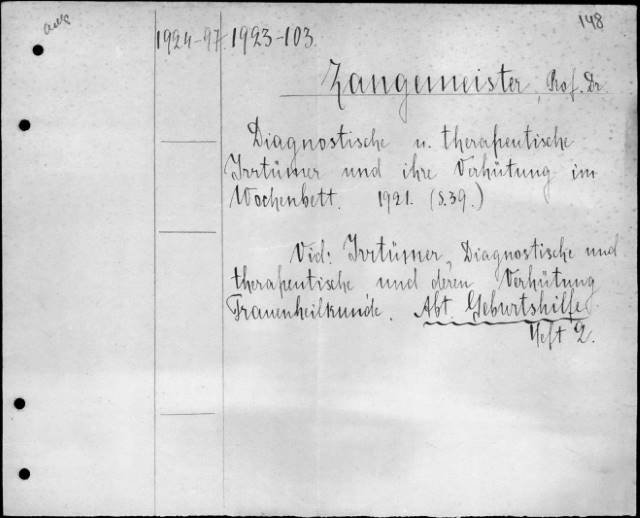 148
1924-97 1923-103
Zangemeister, Prof. Dr
Diagnostische u. therapeutische
Irrtümer und ihre Verhütung im
Wochenbett. 1921. (S.39.)
Vid: Irrtümer, Diagnostische und
therapeutische und deren Verhütung
Frauenheilkunde. Abt. Geburtshilfe
Heft 2.